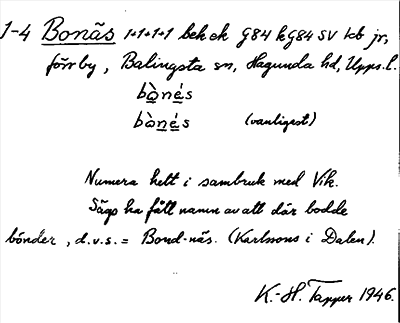 1-4 Bonäs 1+1+1+1 bek ek G84 kG84 SV leb jr,
förr by, Balingsta sn, Hagunda hd, Upps. l.
bò̱nḛ́s
bò̱nḛ́s (vanligest)
Numera helt i sambruk med Vik.
Sägs ha fått namn av att där bodde
bönder, d.v.s. = Bond-näs. (Karlssons i Dalen).
K.-H. Tapper 1946.